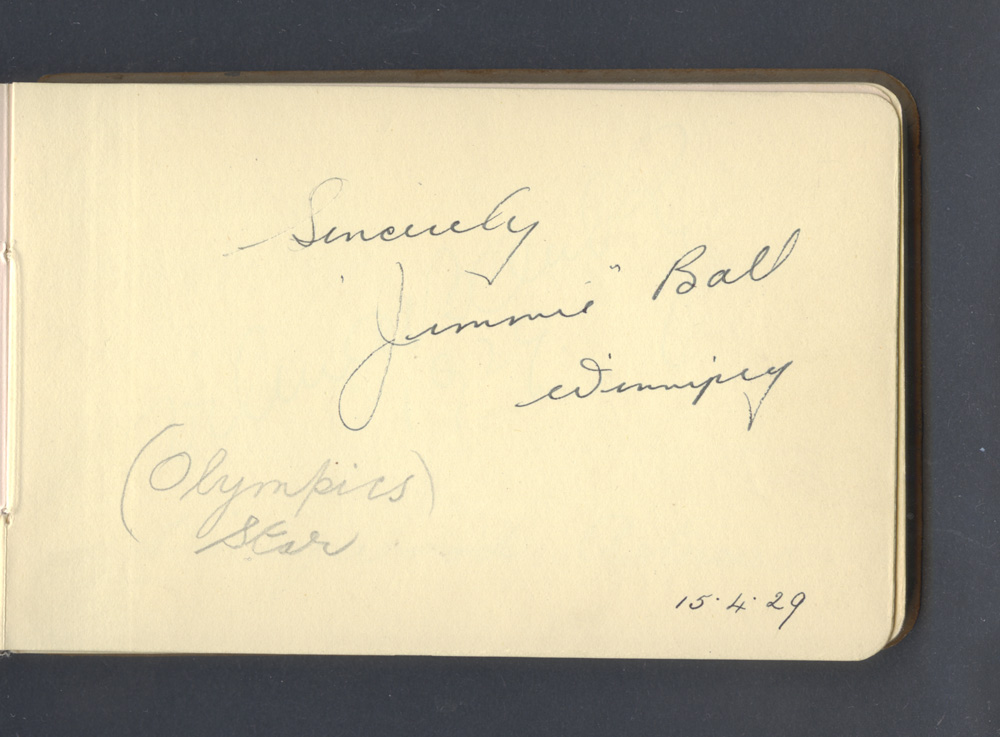 Sincerely
"Jimmie" Ball
Winnipeg
(Olympics)
Star
15.4.29